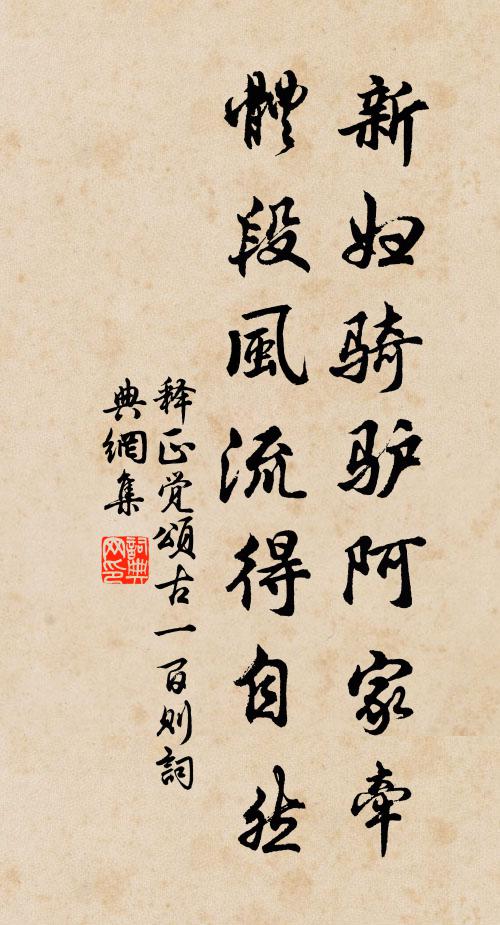 新妇骑驴阿家牵
體段風流得自然
释正觉頌古一百则詞
典網集
詞典网印